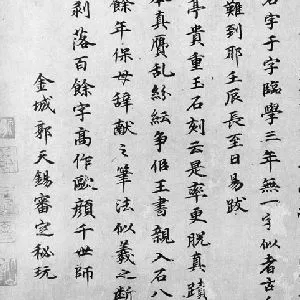 字于字臨學三年無一字似者
難到耶壬辰長至日易跋
亭貴重玉石刻云是率更脫真蹟
本真贗乱紛紜争佀王書親入石八
餘年保母辭獻之筆法似羲之断
剥落百餘字高作歐顏千世師
金城郭天錫審定秘玩